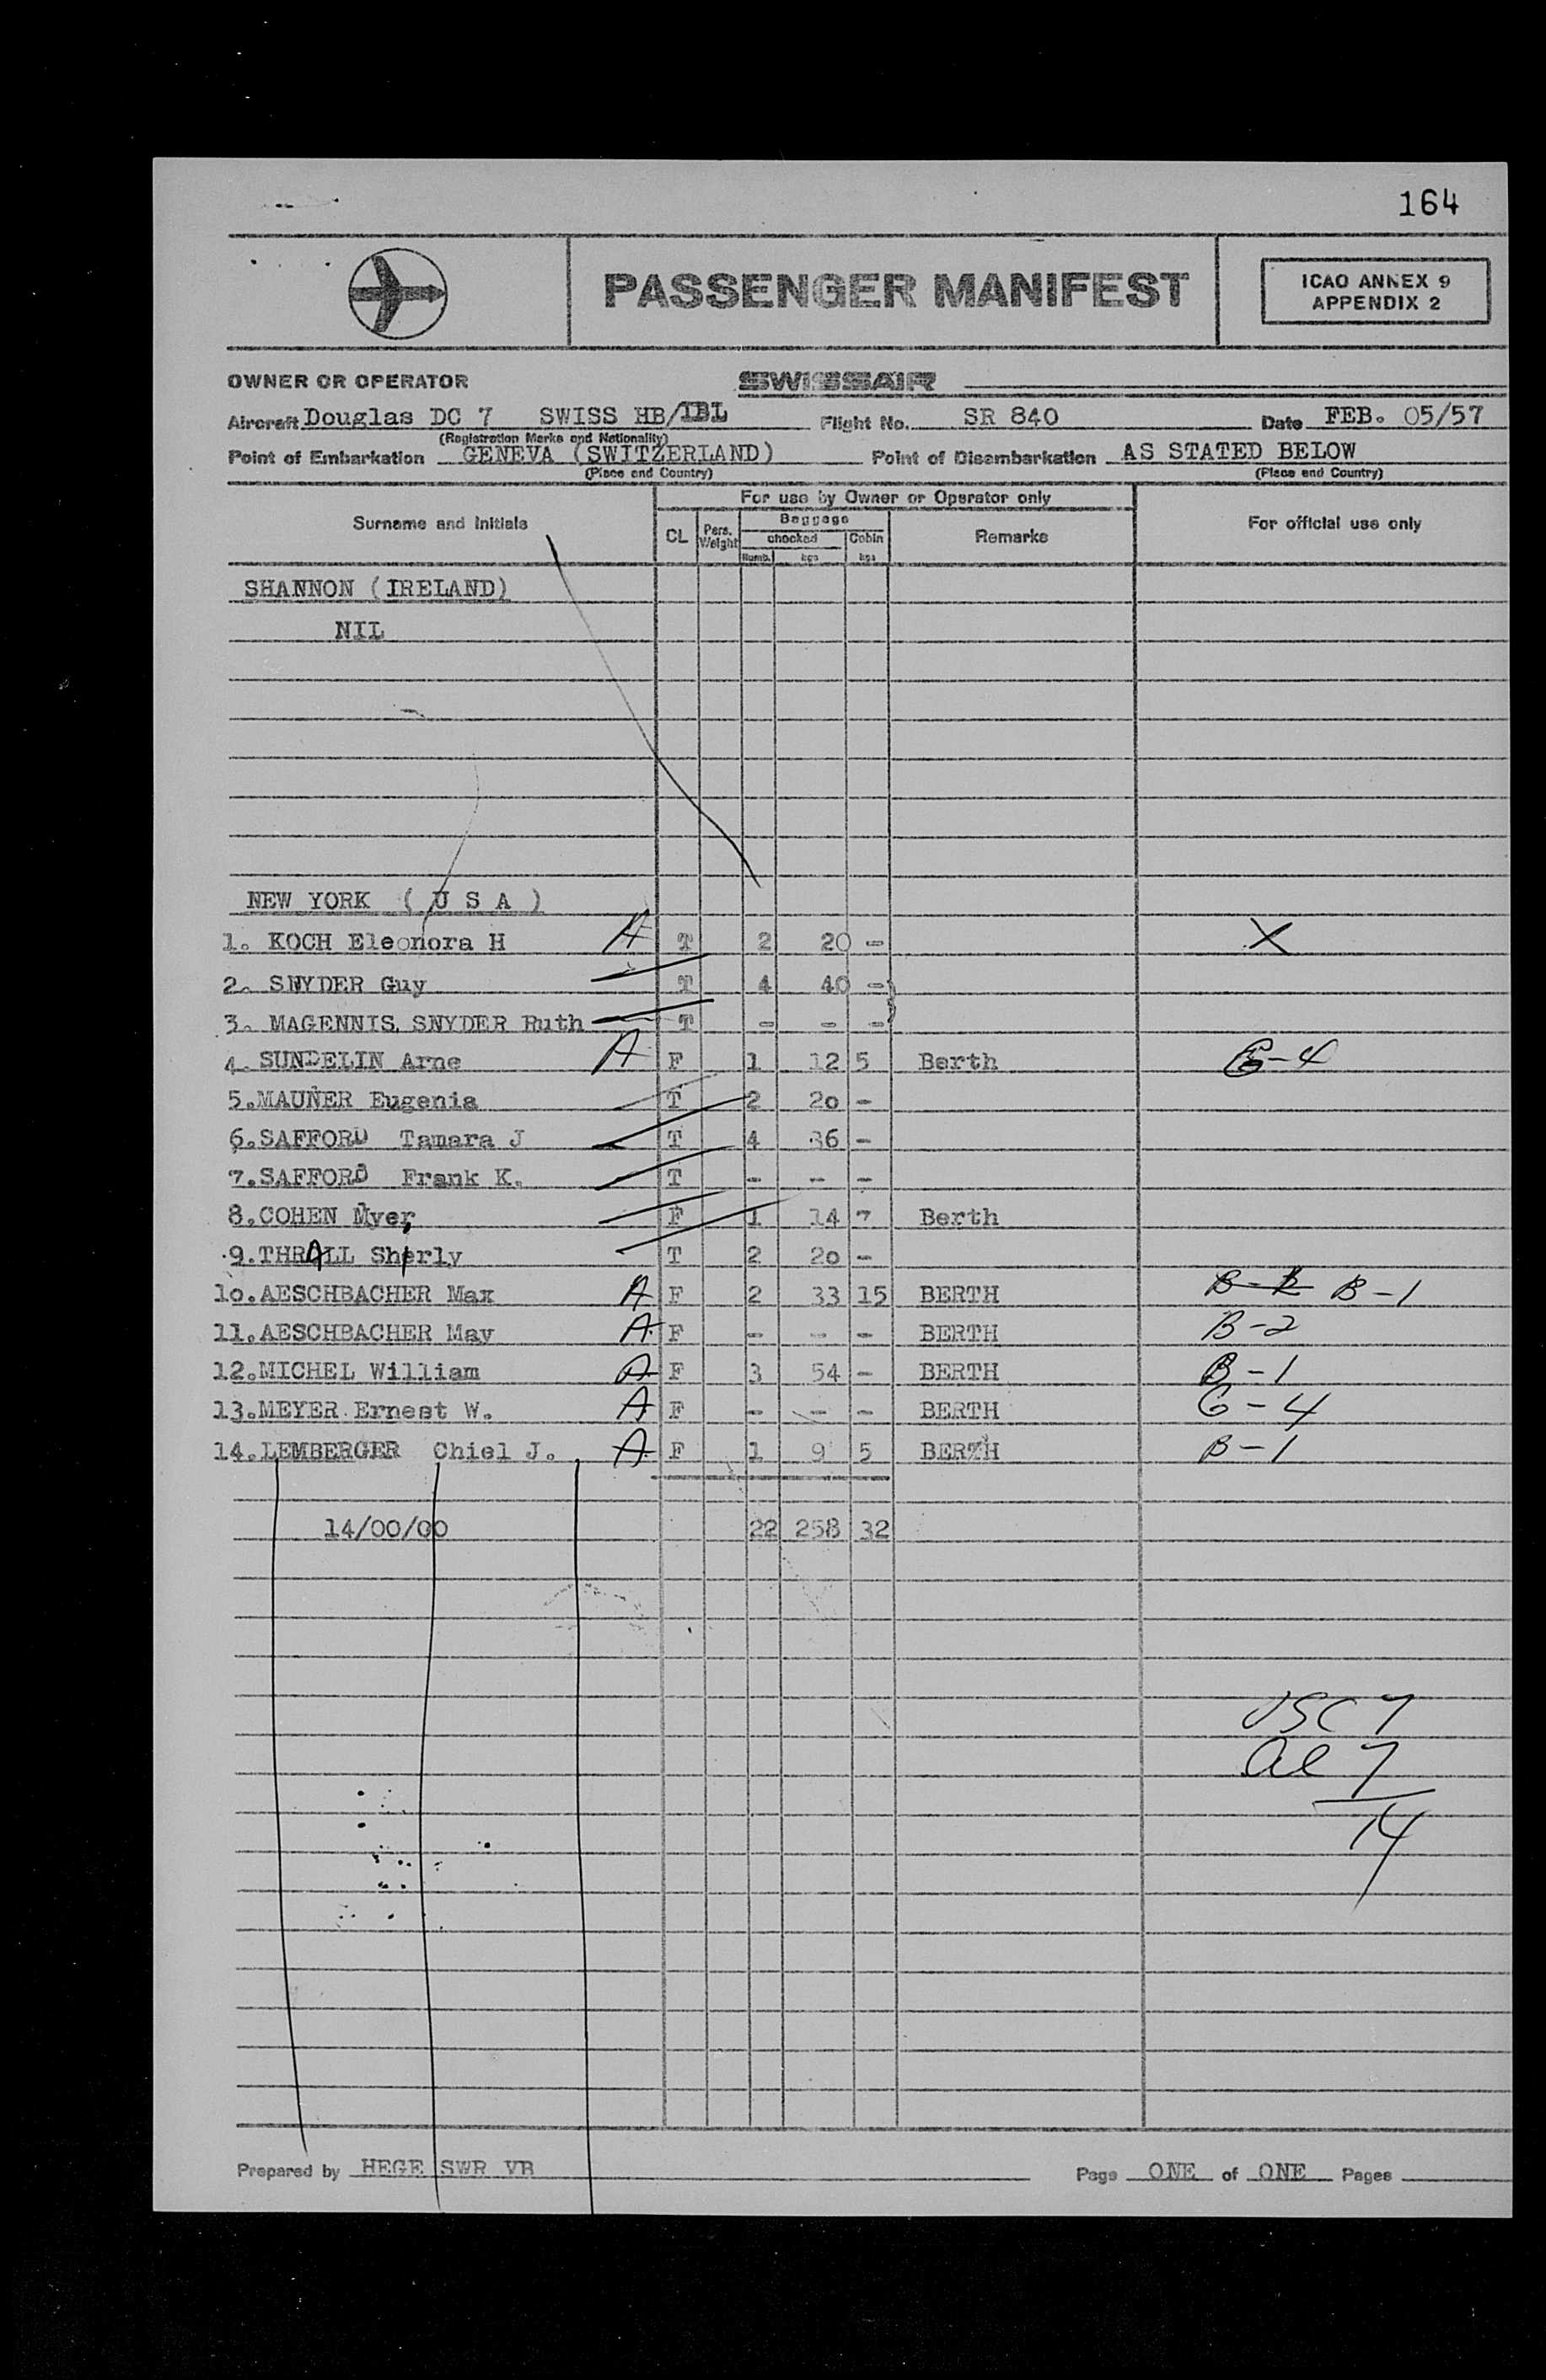 164
PASSENGER MANIFEST
ICAO ANNEX 9
APPENDIX 2
OWNER OR OPERATOR SWISSAIR
Aircraft Douglas DC 7 SWISS HB/IBL Flight No. SR 840 Date FEB. 05/57
(Registration Marks and Nationality)
Point of Embarkation GENEVA (SWITZERLAND) Point of Disembarkation AS STATED BELOW
(Place and Country) (Place and Country)
For use by Owner or Operator only
Surname and Initials CL Pers. Weight Baggage Remarks For official use only
checked Cabin
Numb. kgs kgs
SHANNON (IRELAND)
NIL
NEW YORK ( U S A )
1. KOCH Eleonora H A T 2 20 - X
2. SNYDER Guy T 4 40 -
3. MAGENNIS SNYDER Ruth T - - -
4. SUNDELIN Arne A F 1 12 5 Berth G-4
5.MAUNER Eugenia T 2 20 -
6.SAFFORD Tamara J T 4 36 -
7.SAFFORD Frank K. T - - -
8.COHEN Myer F 1 14 7 Berth
9.THRALL Shirly T 2 20 -
10.AESCHBACHER Max A F 2 33 15 BERTH B-1
11.AESCHBACHER May A F - - - BERTH B-2
12.MICHEL William A F 3 54 - BERTH B-1
13.MEYER Ernest W. A F - - - BERTH G-4
14.LEMBERGER Chiel J. A F 1 9 5 BERTH B-1
14/00/00 22 258 32
USC 7
al 7
14
Prepared by HEGE SWR VB Page ONE of ONE Pages